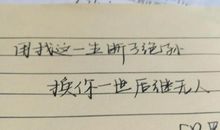 用我这一生断子绝孙
换你一世后继无人